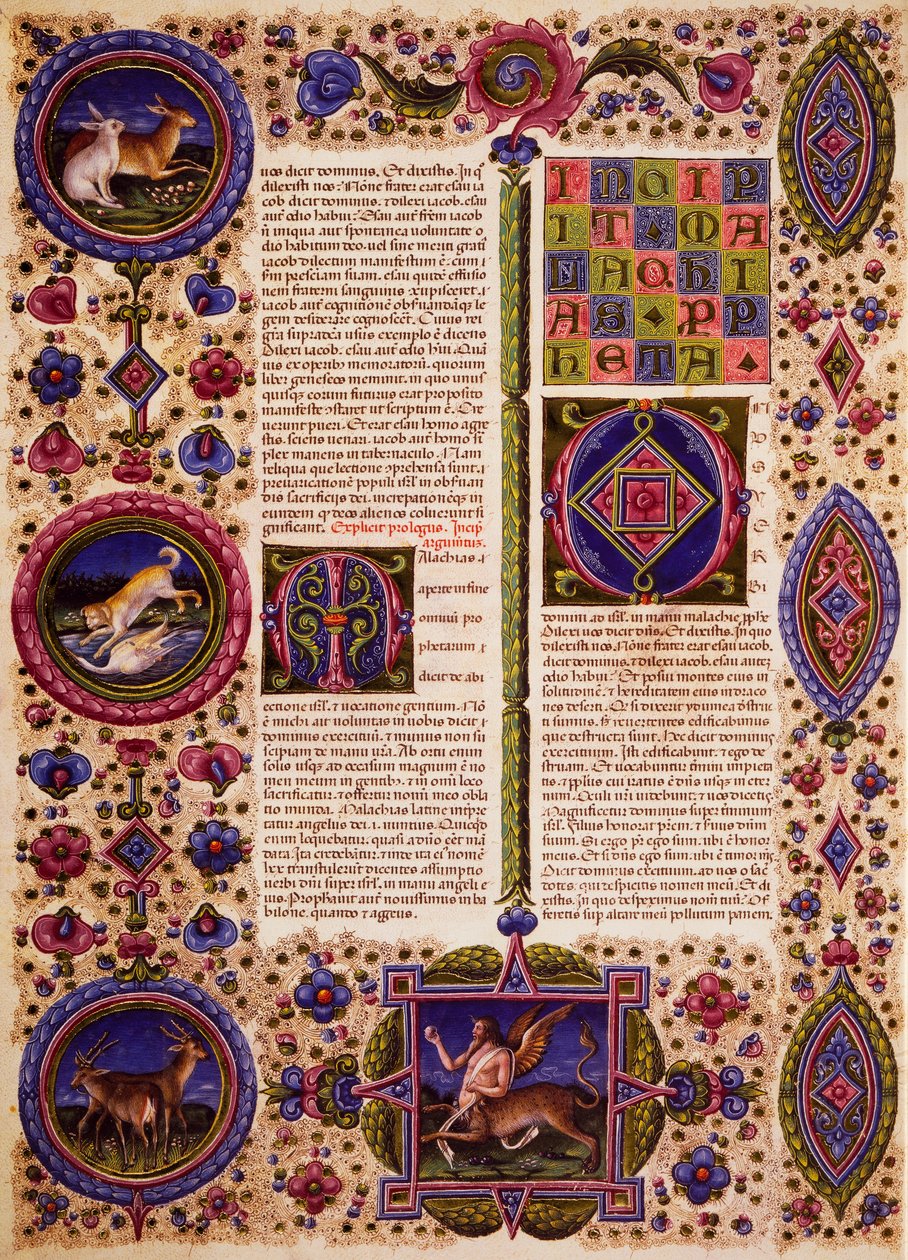 uos dicit dominus. Et dixistis. In q̄
dilexisti nos? Nōne frater erat esau ia
cob dicit dominus, ⁊ dilexi iacob. esau
aut̄ odio habui? Esau aut̄ fr̄em iacob
ñ iniqua aut spontanea uoluntate o
dio habitum deo, uel sine merit' grati
iacob dilectum manifestum ē. cum ⁊
fr̄m presciam suam. esau quidē effusio
nem fraterni sanguinis
iacob aut̄ cognitionē obseruandāqz le
gem desiderare cognoscēt. Cuius rei
gr̄a supradc̄a usus exemplo ē dicens
Dilexi iacob. esau aut̄ odio h̄ui. Quā
uis ex operib; memoratōrū. quorum
liber geneseos meminit. in quo unus
quisqz eorum futurus erat proposito
manifeste ꝯstaret ut scriptum ē. Cre
uerunt pueri. Et erat esau homo agre
stis. sciens uenari. iacob aut̄ homo si
plex manens in tabernaculo. Nam
reliqua que lectione ꝯprehensa sunt. ⁊
preuaricationē populi isr̄l in obseruan
dis sacrificijs dei. increpationēqz in
eundem qz deos alienos coluerint si
gnificant. Explicit prologus. Incip̄
argum̄tū.
MAlachias ⁊
aperte infine
omniū pro
phetarum ⁊
dicit de abi
ectione isr̄l. ⁊ uocatione gentium. Nō
ē michi ait uoluntas in uobis dicit ⁊
dominus exercitiū. ⁊ munus non su
scipiam de manu ur̄a. Ab ortu enim
solis usqz ad occasum magnum ē no
men meum in gentib; ⁊ in om̄i loco
sacrificatur ⁊ offertur nomi meo obla
tio munda. Malachias latine int̄pre
tatur angelus dei. i. nuntius. Quicqd
enim loquebatur. quasi a dn̄o eēnt mā
data. ita credebatur. ⁊ inde ita eius nomē
lxx transtulerūt dicentes assumptio
uerbi dn̄i super isr̄l. in manu angeli e
ius. Prophauit aut̄ nouissimus in ba
bilone. quando ⁊ aggeus.
INCIP
IT MA
LACHI
AS P P
HETA
O
N
V
S
V
E
R
BI
domini ad isr̄l. in manu malachie ꝓph̄e
Dilexi uos dicit dn̄s. Et dixistis. In quo
dilexisti nos. Nōne frater erat esau iacob.
dicit dominus. ⁊ dilexi iacob. esau aut̄
odio habui? Et posui montes eius in
solitudinē. ⁊ hereditatem eius in draco
nes deserti. Q si dixerit ydumea destruc
ti sumus. s; reuertentes edificabimus
que destructa sunt. Hec dicit dominus
exercituum. Isti edificabunt. ⁊ ego de
struam. Et uocabuntur t̄mini impieta
tis. ⁊ ppl̄us cui iratus ē dn̄s usqz in eter
num. Oculi ur̄i uidebunt. ⁊ uos dicetis
Magnificetur dominus super terminum
isr̄l. Filius honorat pr̄em. ⁊ seruus dn̄m
suum. Si ergo pr̄ ego sum. ubi ē honor
meus. Et si dn̄s ego sum. ubi ē timor m̄s.
Dicit dominus exercituum. ad uos o sac̄
dotes. qui despicitis nomen meū. Et di
xistis. In quo despeximus nomē tuū? Of
fertis sup altare meū pollutum panem.